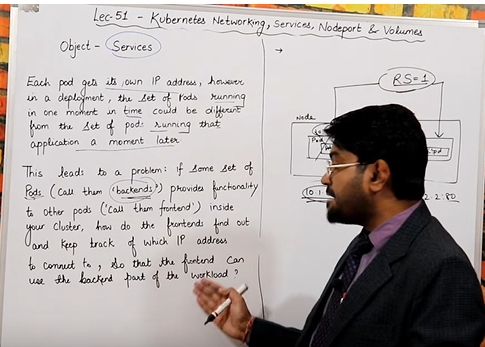 Lec-51 - Kubernetes Networking, Services, Nodeport & Volumes
Object - Services
Each pod gets its own IP address, however
in a deployment, the set of Pods running
in one moment in time could be different
from the set of pods running that
application a moment later
This leads to a problem: if some set of
Pods (call them 'backends') provides functionality
to other pods ('Call them frontend') inside
your Cluster, how do the frontends find out
and keep track of which IP address
to connect to, so that the frontend can
use the backend part of the workload?
→
RS=1
Node
Pod
10.1
2.2:80